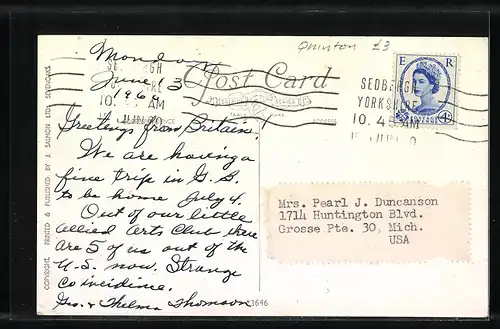 Quinton £3
Monday
June 13
1960
Post Card
E R
SEDBERGH
YORKSHIRE
10.45 AM
JUN
POSTAGE
4D
Greetings from Britain!
We are having a
fine trip in G.B.
to be home July 4.
Out of our little
Allied Arts Club there
are 5 of us out of the
U.S. now. Strange
coincidence.
Geo. & Thelma Thomson
Mrs. Pearl J. Duncanson
1714 Huntington Blvd.
Grosse Pte. 30, Mich.
USA
3646
COPYRIGHT. PRINTED & PUBLISHED BY J. SALMON LTD., SEVENOAKS